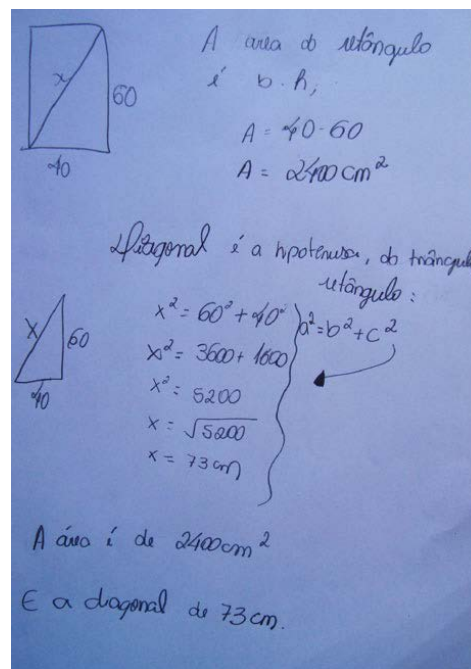 A area do retângulo
é b. h;
x
60
40
A = 40 · 60
A = 2400 cm²
é a hipotenusa, do triângulo
retângulo :
x
60
40
x² = 60² + 40²
a² = b² + c²
x² = 3600 + 1600
x² = 5200
x = √5200
x = 73 cm
A área é de 2400 cm²
E a diagonal de 73 cm.